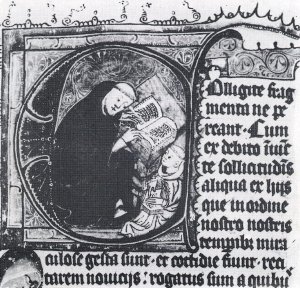 Colligite frag
menta ne pe
reant. Cum
ex debito
sollicitudīs
aliqua ex hijs
que in ordine
nostro nostris
temporibꝰ mira
culose gesta sunt · et cotidie fiunt · reci
tarem nouicijs : rogatus sum a quibu